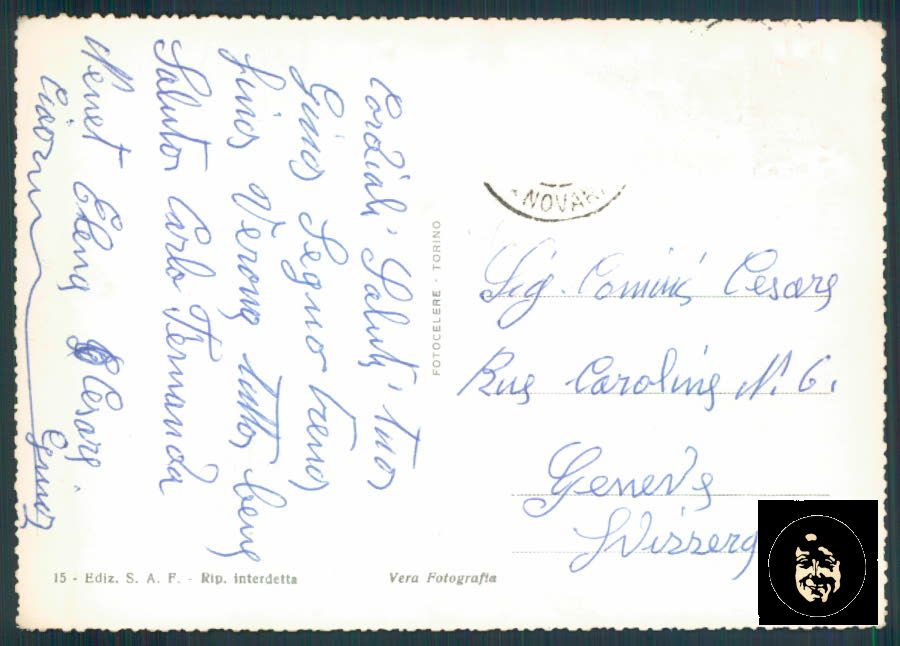 Cordiali Saluti tuo
Gino Segno treno
fino Verona tutto bene
Saluto Carlo Fernanda
Elena Cesare
Gino
FOTOCELERE - TORINO
NOVAR
Sig. Cominé Cesare
Rue Caroline N. 6.
Geneve
Svizzera
15 - Ediz. S. A. F. - Rip. interdetta
Vera Fotografia